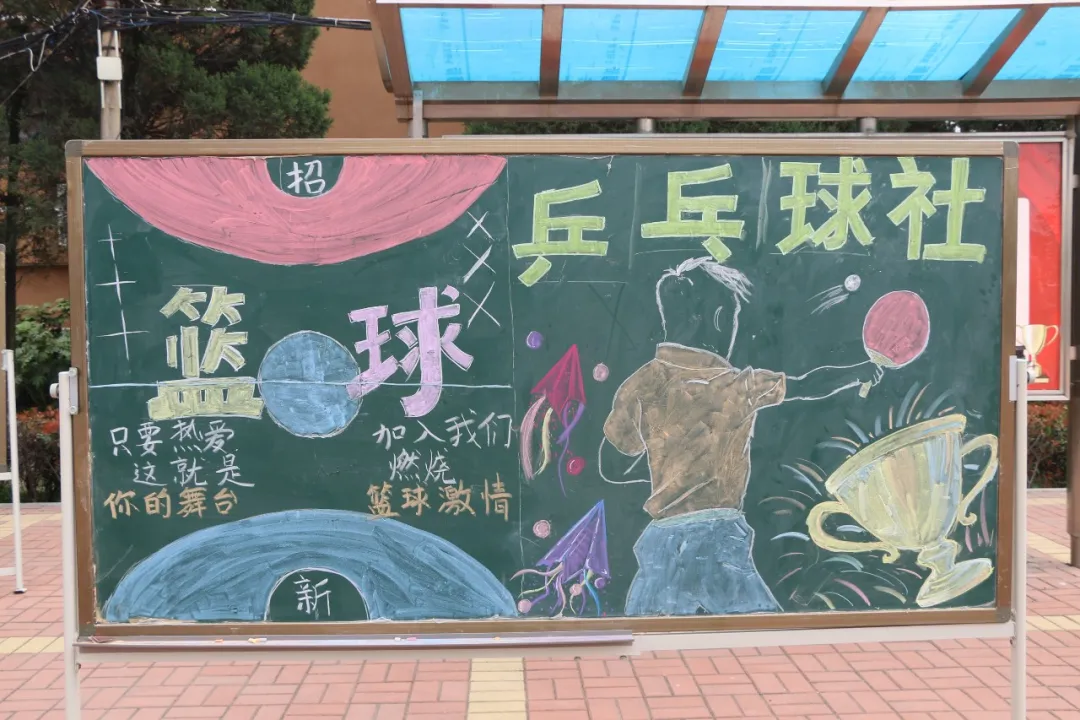 招
篮球
只要热爱
这就是
你的舞台
加入我们
燃烧
篮球激情
新
乒乓球社